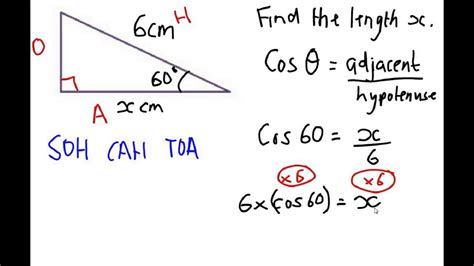 O
6cm H
60°
A
x cm
SOH CAH TOA
Find the length x.
Cos θ = adjacent
hypotenuse
Cos 60 = x
6
x6 x6
6x(cos60) = x